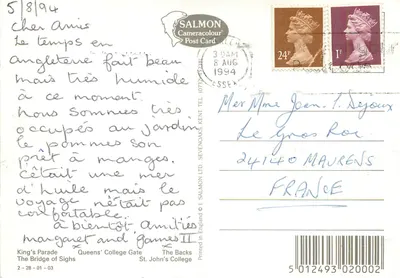 5/8/94
Cher Amis
le temps en
Angleterre fait beau
mais très humide
à ce moment.
nous sommes très
occupés au jardin
le pommes son
prêt à manges.
c'était une mer
d'huile mais le
voyage n'était pas
confortable.
à bientôt amitiés
margaret and james II
King's Parade Queens' College Gate The Backs
The Bridge of Sighs St. John's College
2-28-01-03
SALMON
Cameracolour
Post Card
Printed in England © J. SALMON LTD. SEVENOAKS KENT TEL
8 AUG
1994
ESSEX
24P
1P
Mer Mme Jean.
Le Gros Roc
24140 MAURENS
FRANCE
5 012493 020002